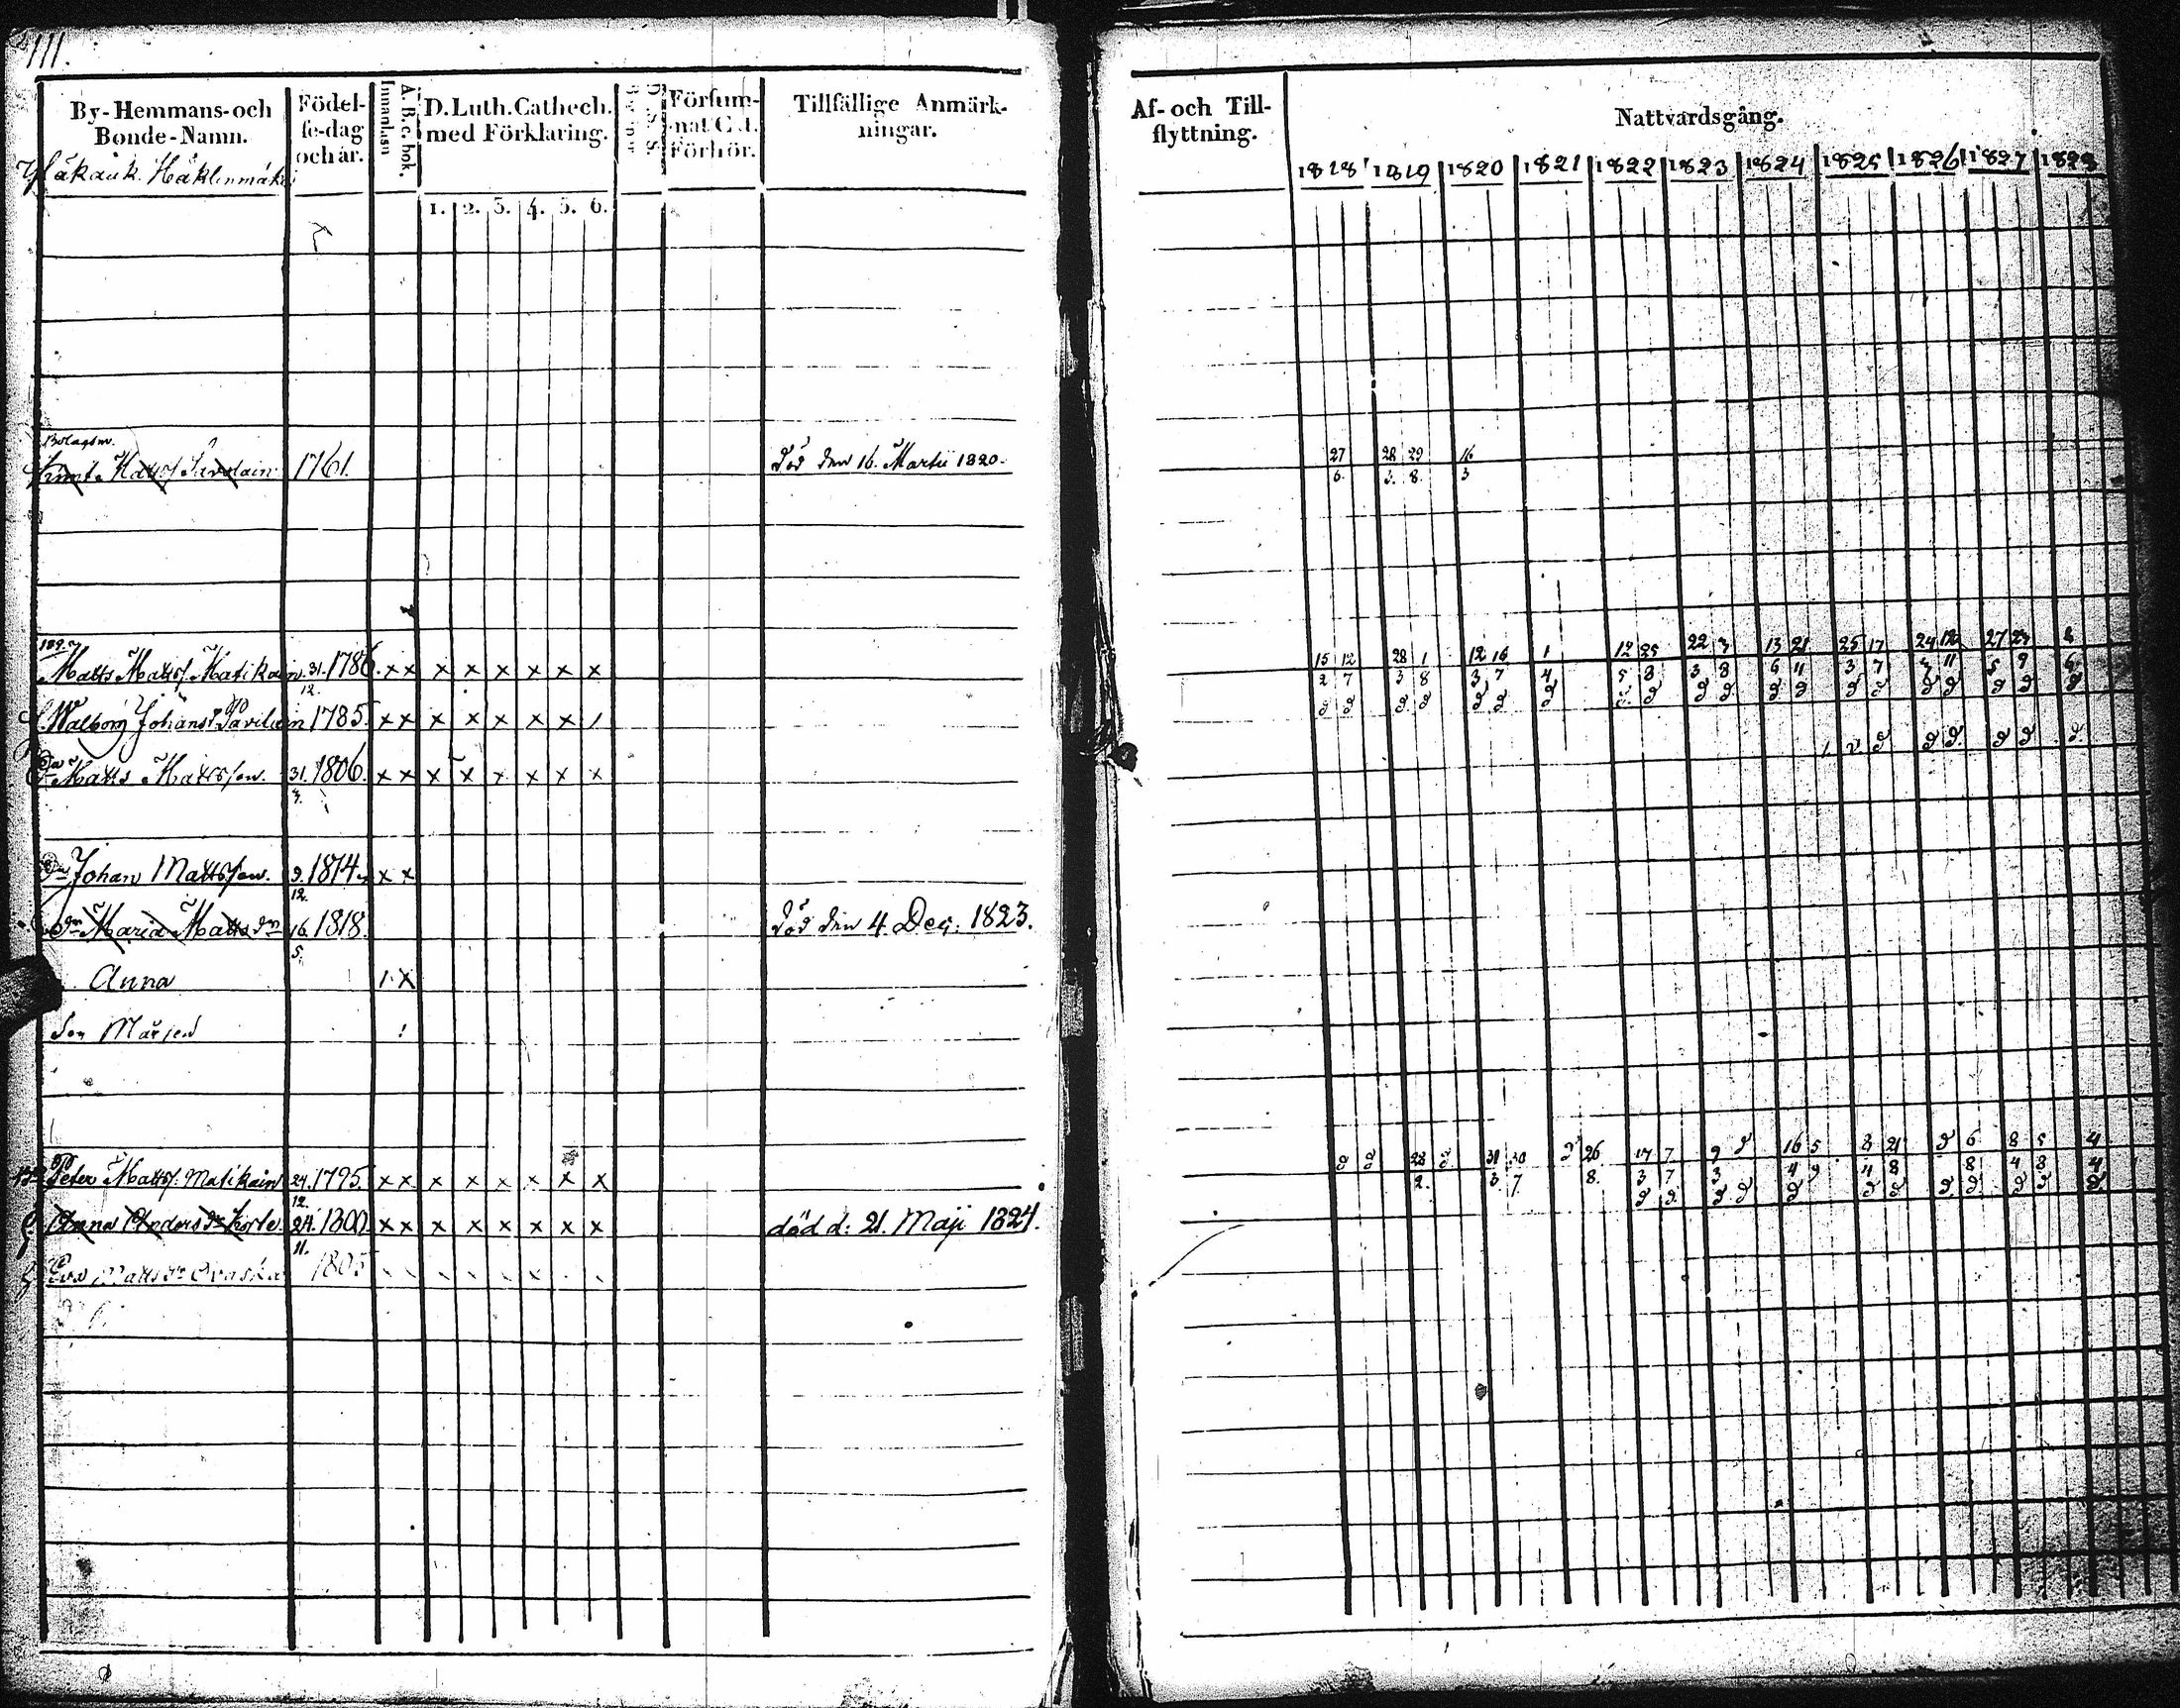 111.
By-Hemmans-och Bonde-Namn.
Födel-se-dag och år.
Innanläsn
A. B. c. bok.
D. Luth. Cathech. med Förklaring.
1. 2. 3. 4. 5. 6.
Försum-nat Cat. Förhör.
Tillfällige Anmärk-ningar.
Af- och Till-flyttning.
Nattvardsgång.
1818 1819 1820 1821 1822 1823 1824 1825 1826 1827 1828
Bolagsm.
Matts/ Savolain 1761. död den 16. Martii 1820. 27 28 29 16
6. 3. 8. 3
Matts Matts/ Matikain. 31. 1786. x x x x x x x x 15 12 28 1 12 16 1 12 25 22 3 13 21 25 17 24 12 27 23 2
12. 2 7 3 8 3 7 4 5 8 3 8 6 11 3 7 3 11 5 9 6
H. Walborg Johansdr Savilain 1785. x x x x x x x /
Sn Matts Matts/on. 31. 1806. x x x x x x x x
3.
Sn Johan Matts/on. 9. 1814. x x
12.
dr Maria Matts dr 16. 1818. död den 4. Dec. 1823.
5.
Anna 1. x
Peter Matts/. Matikain 24. 1795. x x x x x x x x 28 31 30 26 17 7 9 16 5 8 21 6 8 5 4
12. 2. 3. 7. 8. 3 7 3 4 9 4 8 8 4 8 4
Anna Anders dr 24. 1800. x x x x x x x x död d: 21. Maji 1824.
11.
Eva Matts dr Ovaska 1805